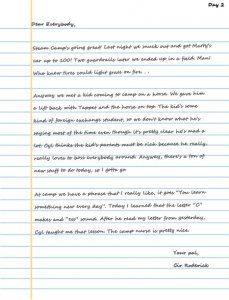 Day 2
Dear Everybody,
Steam Camp's going great! Last night we snuck out and got Marty's
car up to 100! Two guardrails later we ended up in a field. Man!
Who knew tires could light grass on fire . . .
Anyway we met a kid coming to camp on a horse. We gave him
a lift back with Tappet and the horse on top. The kid's some
kind of foreign exchange student, so we don't know what he's
saying most of the time even though it's pretty clear he's mad a
lot. Cyl thinks the kid's parents must be rich because he really,
really loves to boss everybody around. Anyway, there's a ton of
new stuff to do today, so I gotta go
At camp we have a phrase that I really like, it goes "You learn
something new every day". Today I learned that the letter "C"
makes and "ess" sound. After he read my letter from yesterday,
Cyl taught me that lesson. The camp nurse is pretty nice.
Your pal,
Sir Roderick